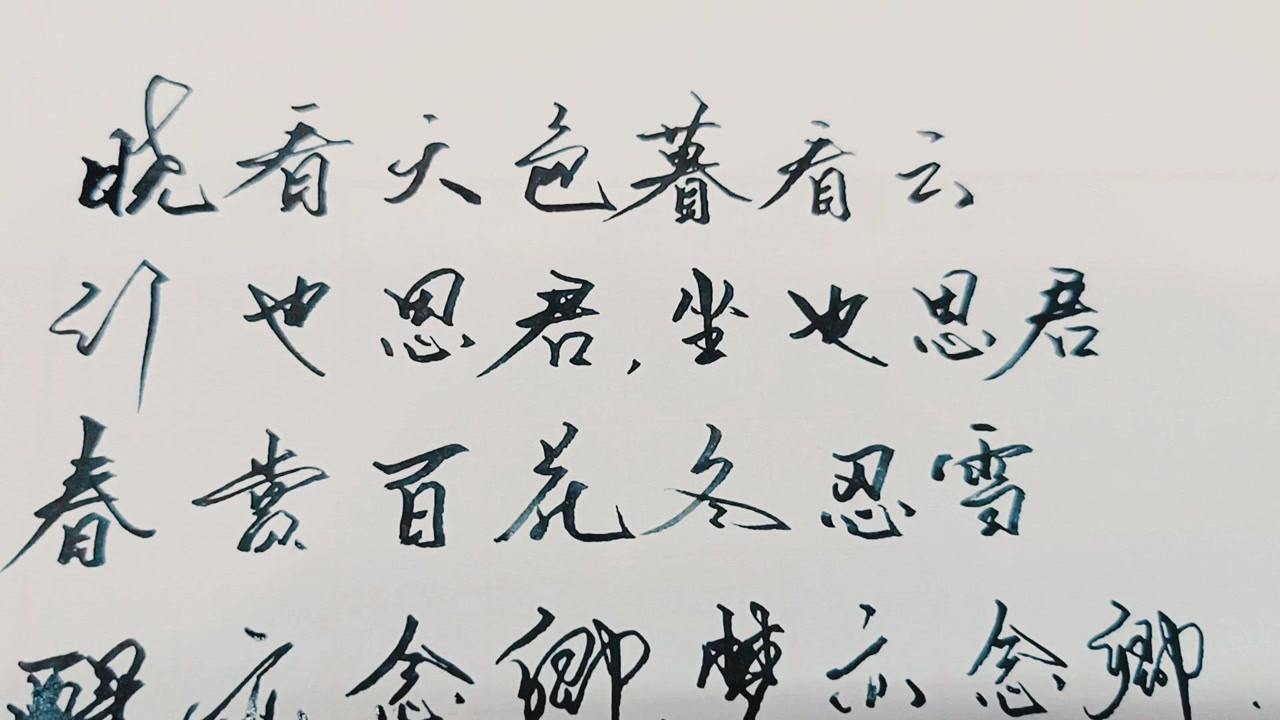 晓看天色暮看云
行也思君,坐也思君
春赏百花冬忍雪
醒亦念卿,梦亦念卿.